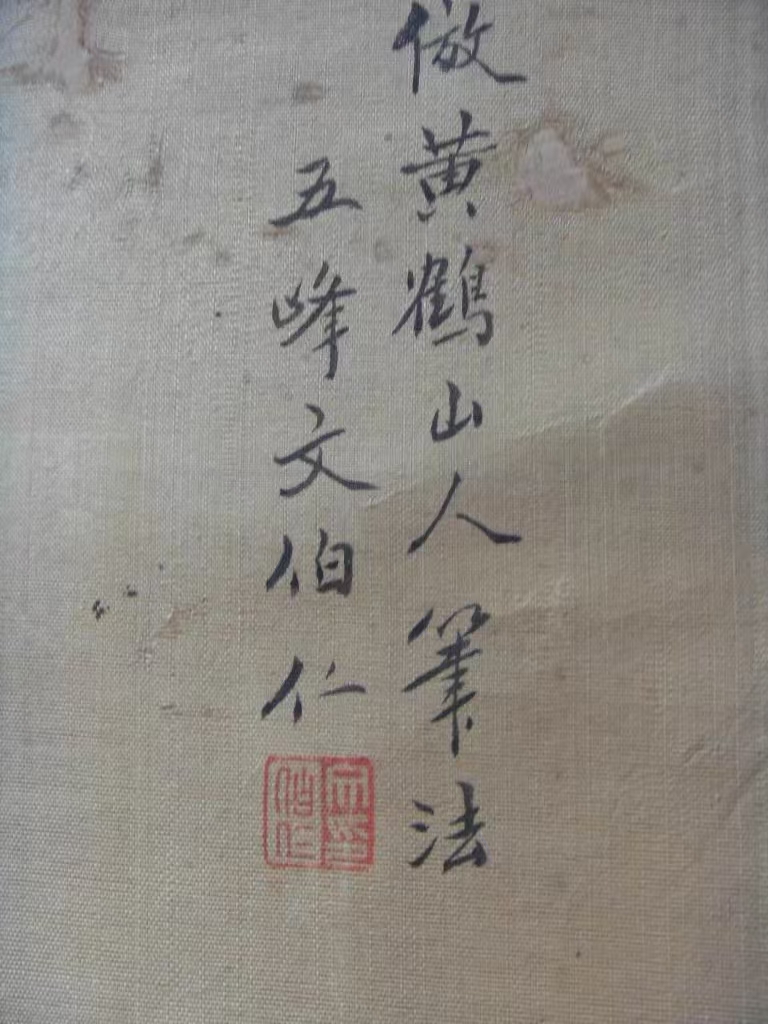 倣黄鶴山人筆法
五峰文伯仁